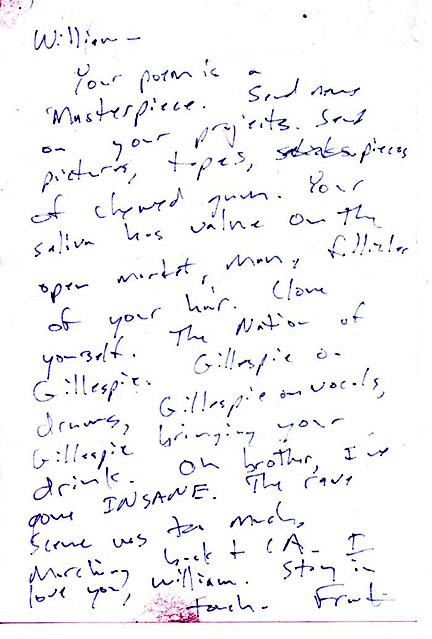 William —
Your poem is a
Masterpiece. Send more
on your projects. Send
pictures, tapes, pieces
of chewed gum. Your
saliva has value on the
open market, man, follicles
of your hair. Clone
yourself. The Nation of
Gillespie. Gillespie on
drums, Gillespie on vocals,
Gillespie bringing your
drink. Oh brother, I've
gone INSANE. The rave
scene was too much,
Marching back to CA. I
love you, William. Stay in
touch.